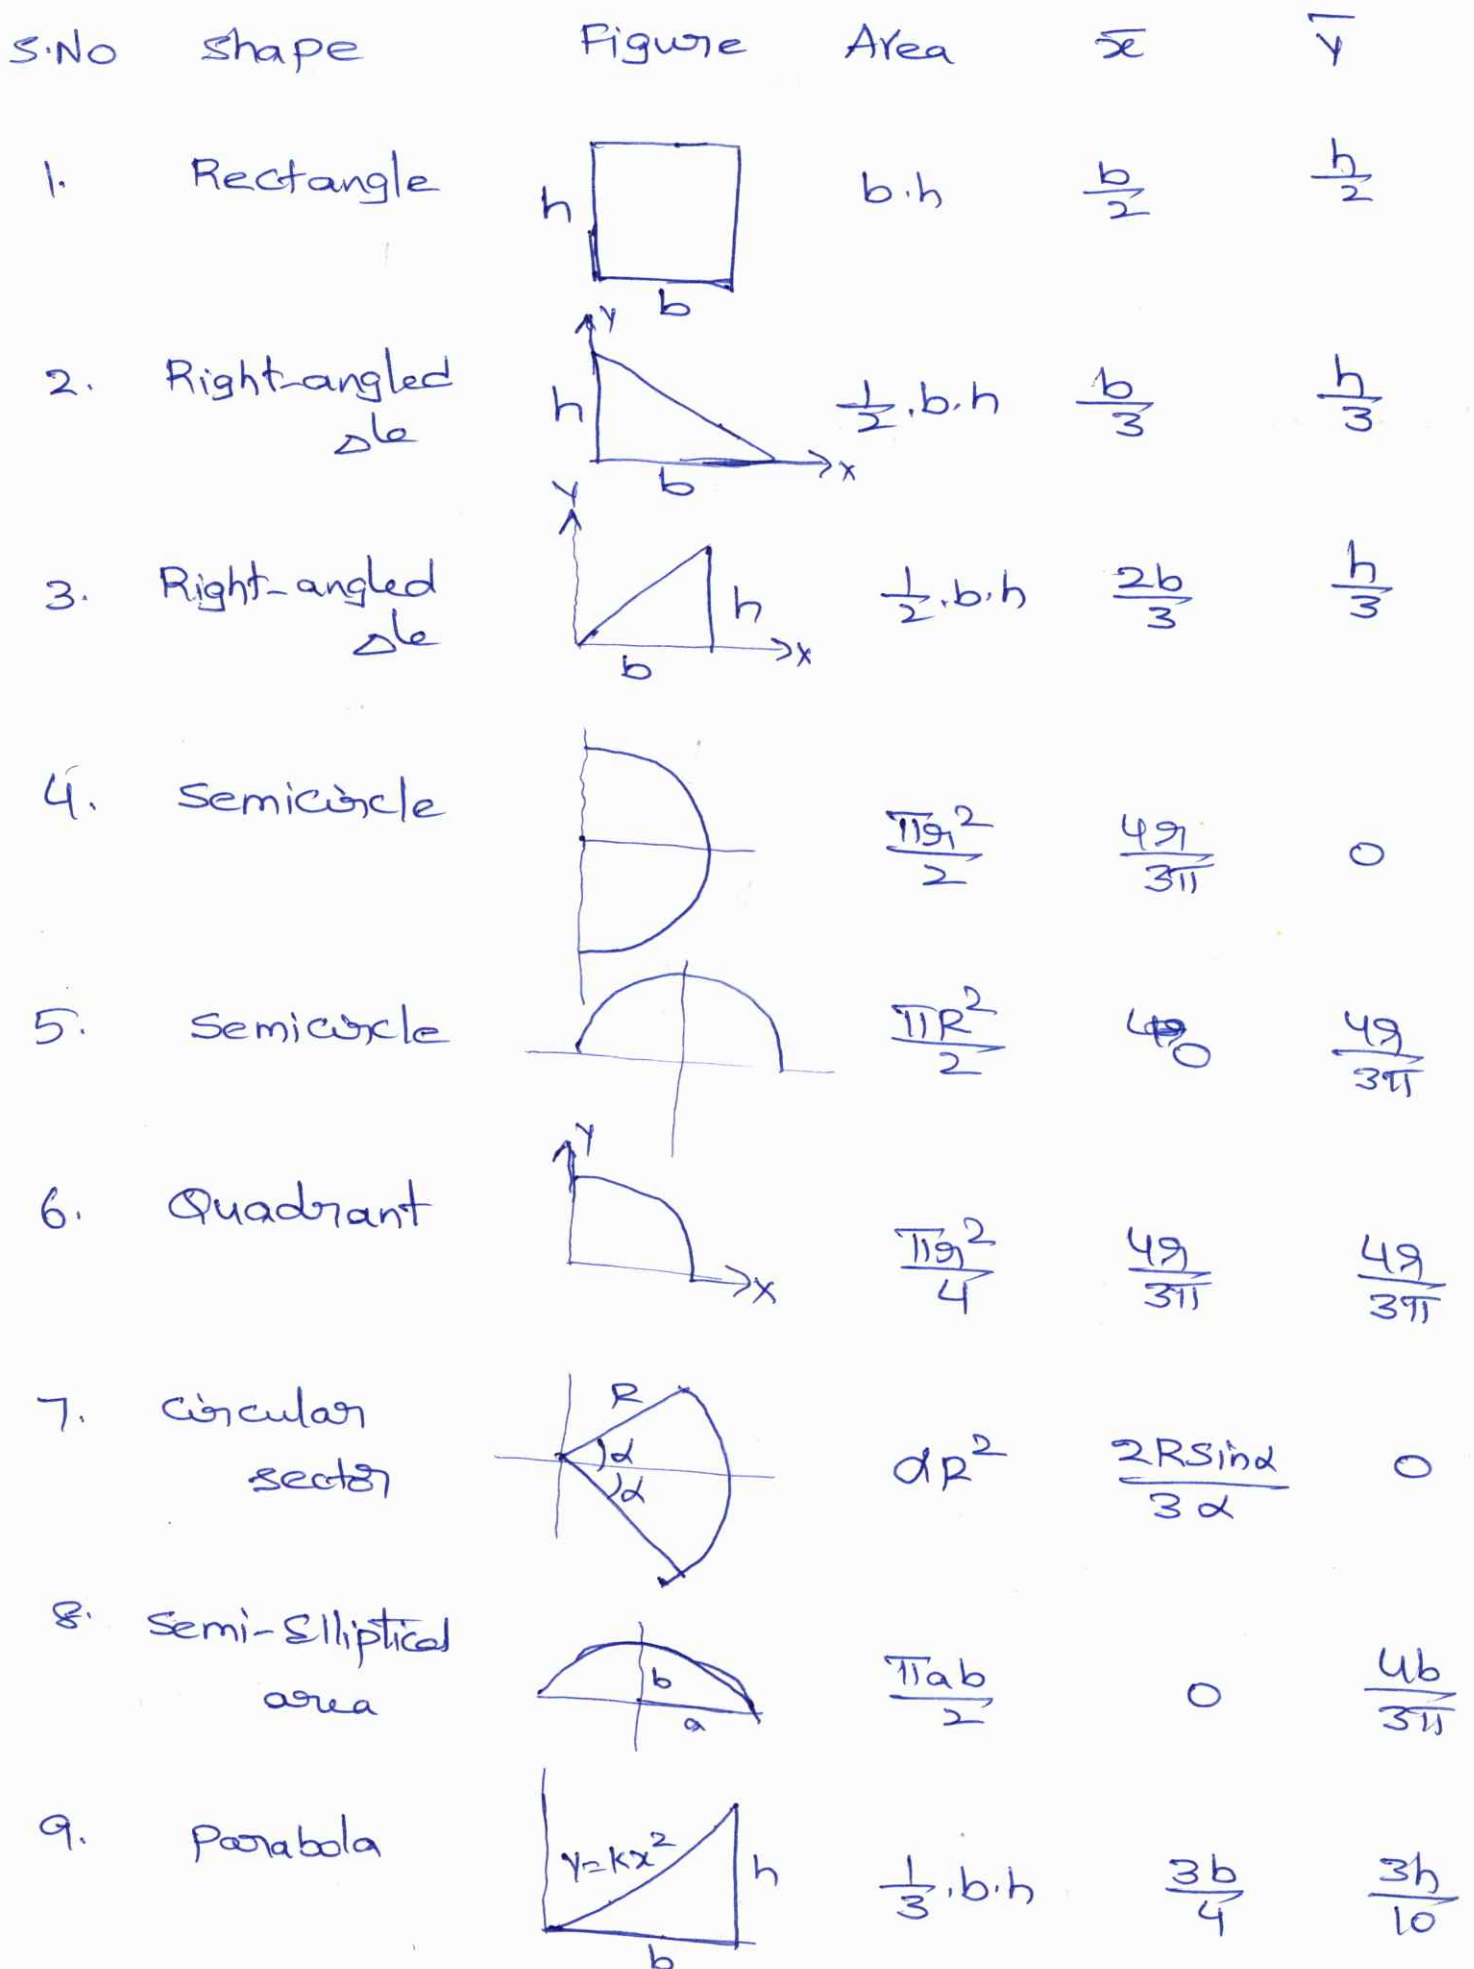 S.No Shape Figure Area x̄ Ȳ
1. Rectangle h b b.h b/2 h/2
2. Right-angled Δle Y h b x 1/2.b.h b/3 h/3
3. Right-angled Δle Y h b x 1/2.b.h 2b/3 h/3
4. Semicircle πr²/2 4r/3π 0
5. Semicircle πR²/2 0 4r/3π
6. Quadrant Y x πr²/4 4r/3π 4r/3π
7. Circular sector R α α αR² 2RSinα/3α 0
8. Semi-Elliptical area b a πab/2 0 4b/3π
9. Parabola y=kx² h b 1/3.b.h 3b/4 3h/10